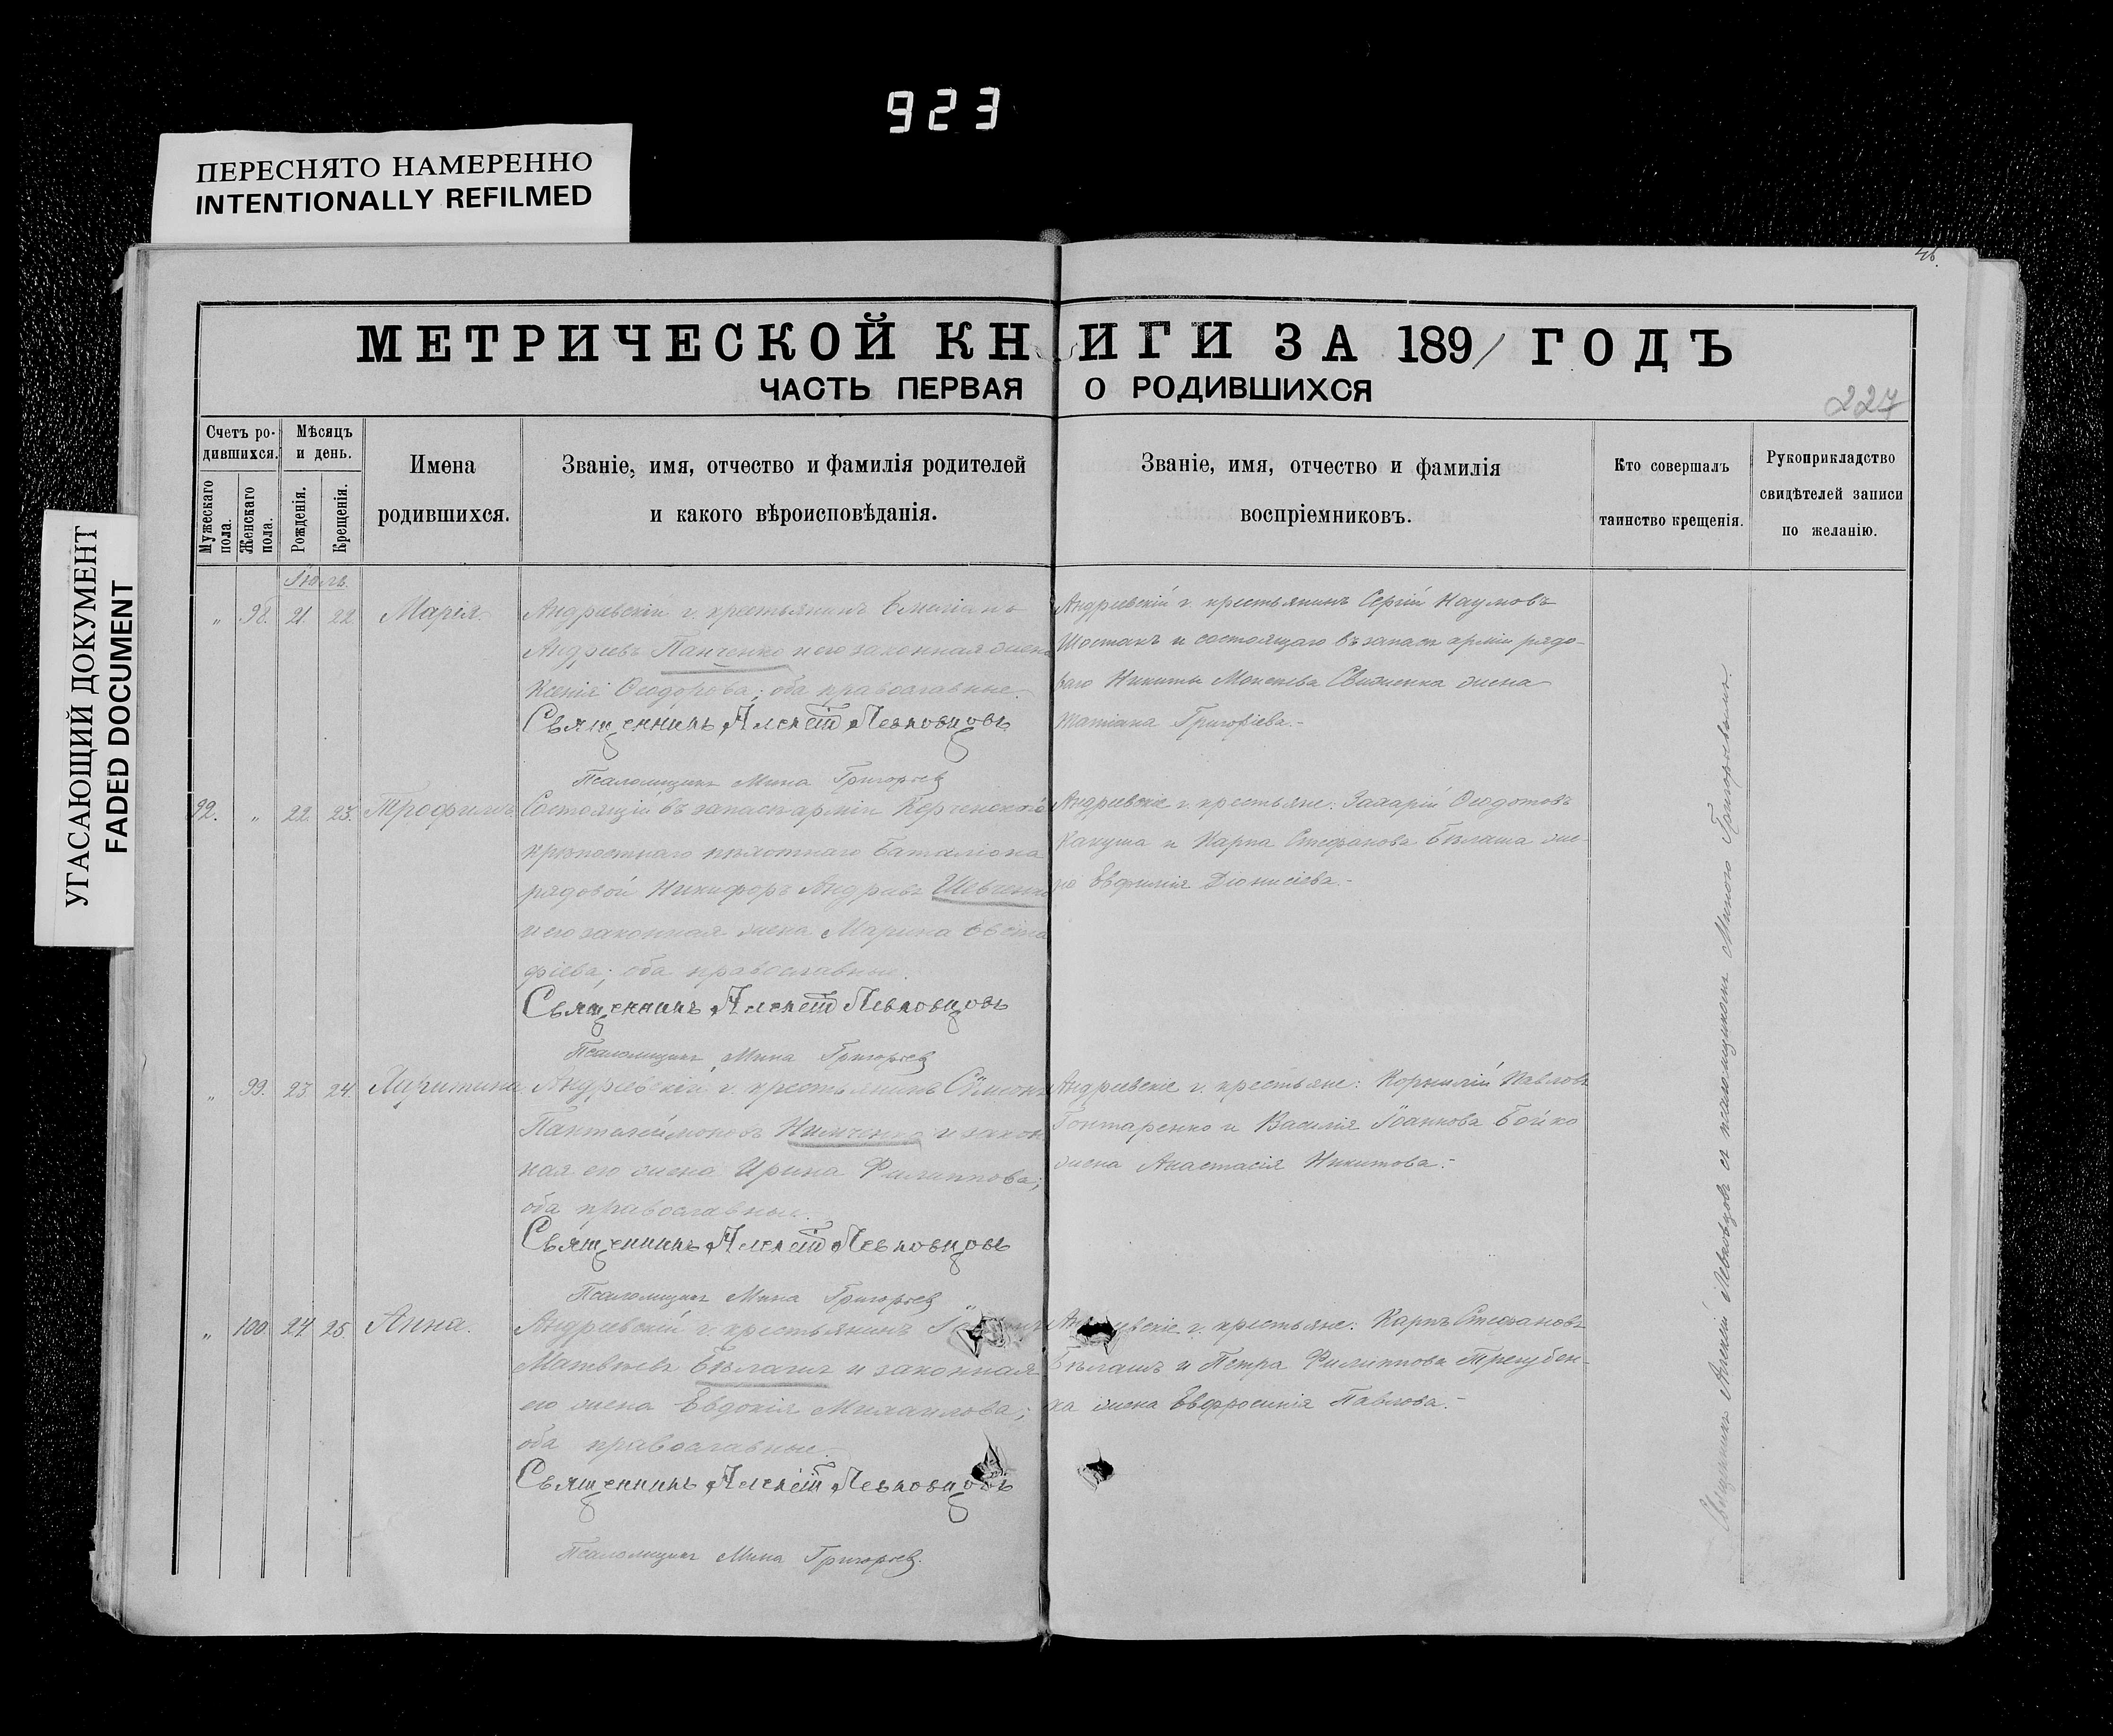 923
ПЕРЕСНЯТО НАМЕРЕННО
INTENTIONALLY REFILMED
УГАСАЮЩИЙ ДОКУМЕНТ
FADED DOCUMENT
46.
МЕТРИЧЕСКОЙ КНИГИ ЗА 1891 ГОДЪ
ЧАСТЬ ПЕРВАЯ О РОДИВШИХСЯ
227
Счетъ ро-
дившихся.
Мужескаго
пола.
Женскаго
пола.
Мѣсяцъ
и день.
Рожденія.
Крещенія.
Имена
родившихся.
Званіе, имя, отчество и фамилія родителей
и какого вѣроисповѣданія.
Званіе, имя, отчество и фамилія
воспріемниковъ.
Кто совершалъ
таинство крещенія.
Рукоприкладство
свидѣтелей записи
по желанію.
Іюль.
„ 98. 21. 22. Марія.
Андреевскій г. крестьянинъ Емиліанъ
Андреевъ Панченко и его законная жена
Ксенія Ѳеодорова; оба православные.
Священникъ Алексій Левковцовъ
Псаломщикъ Мина Григорьев
Андреевскій г. крестьянинъ Сергій Наумовъ
Шостакъ и состоящаго въ запасѣ арміи рядо-
ваго Никиты Моисеева жена
Татіана Григоріева.-
92. „ 22. 23. Трофимъ.
Состоящій въ запасѣ арміи Керченскаго
крѣпостнаго пѣхотнаго баталіона
рядовой Никифоръ Андреевъ Шевченко
и его законная жена Марина Евста
фіева; оба православные.
Священникъ Алексій Левковцовъ
Псаломщикъ Мина Григорьев
Андреевскіе г. крестьяне: Захарій Ѳедотовъ
и Карпа Стефанова Бѣлаша же-
на Евфимія Діонисіева.-
„ 99. 23. 24. Хиритина.
Андреевскій г. крестьянинъ Сѵмеонъ
Пантелеймоновъ Нимченко и закон
ная его жена Ирина Филиппова;
оба православные.
Священникъ Алексій Левковцовъ
Псаломщикъ Мина Григорьев
Андреевскіе г. крестьяне: Корнилій Павловъ
Гонтаренко и Василія Іоаннова Бойко
жена Анастасія Никитова.-
„ 100. 24. 25. Анна.
Андреевскій г. крестьянинъ
Матвѣевъ Бѣлашъ и законная
его жена Евдокія Михаилова;
оба православные.
Священникъ Алексій Левковцовъ
Псаломщикъ Мина Григорьев.
Андреевскіе г. крестьяне: Карпъ Стефановъ
Бѣлашъ и Петра Филиппова Трегубен-
ка жена Евфросинія Павлова.-
Священникъ Алексій Левковцовъ съ псаломщикомъ Миною Григорьевымъ.